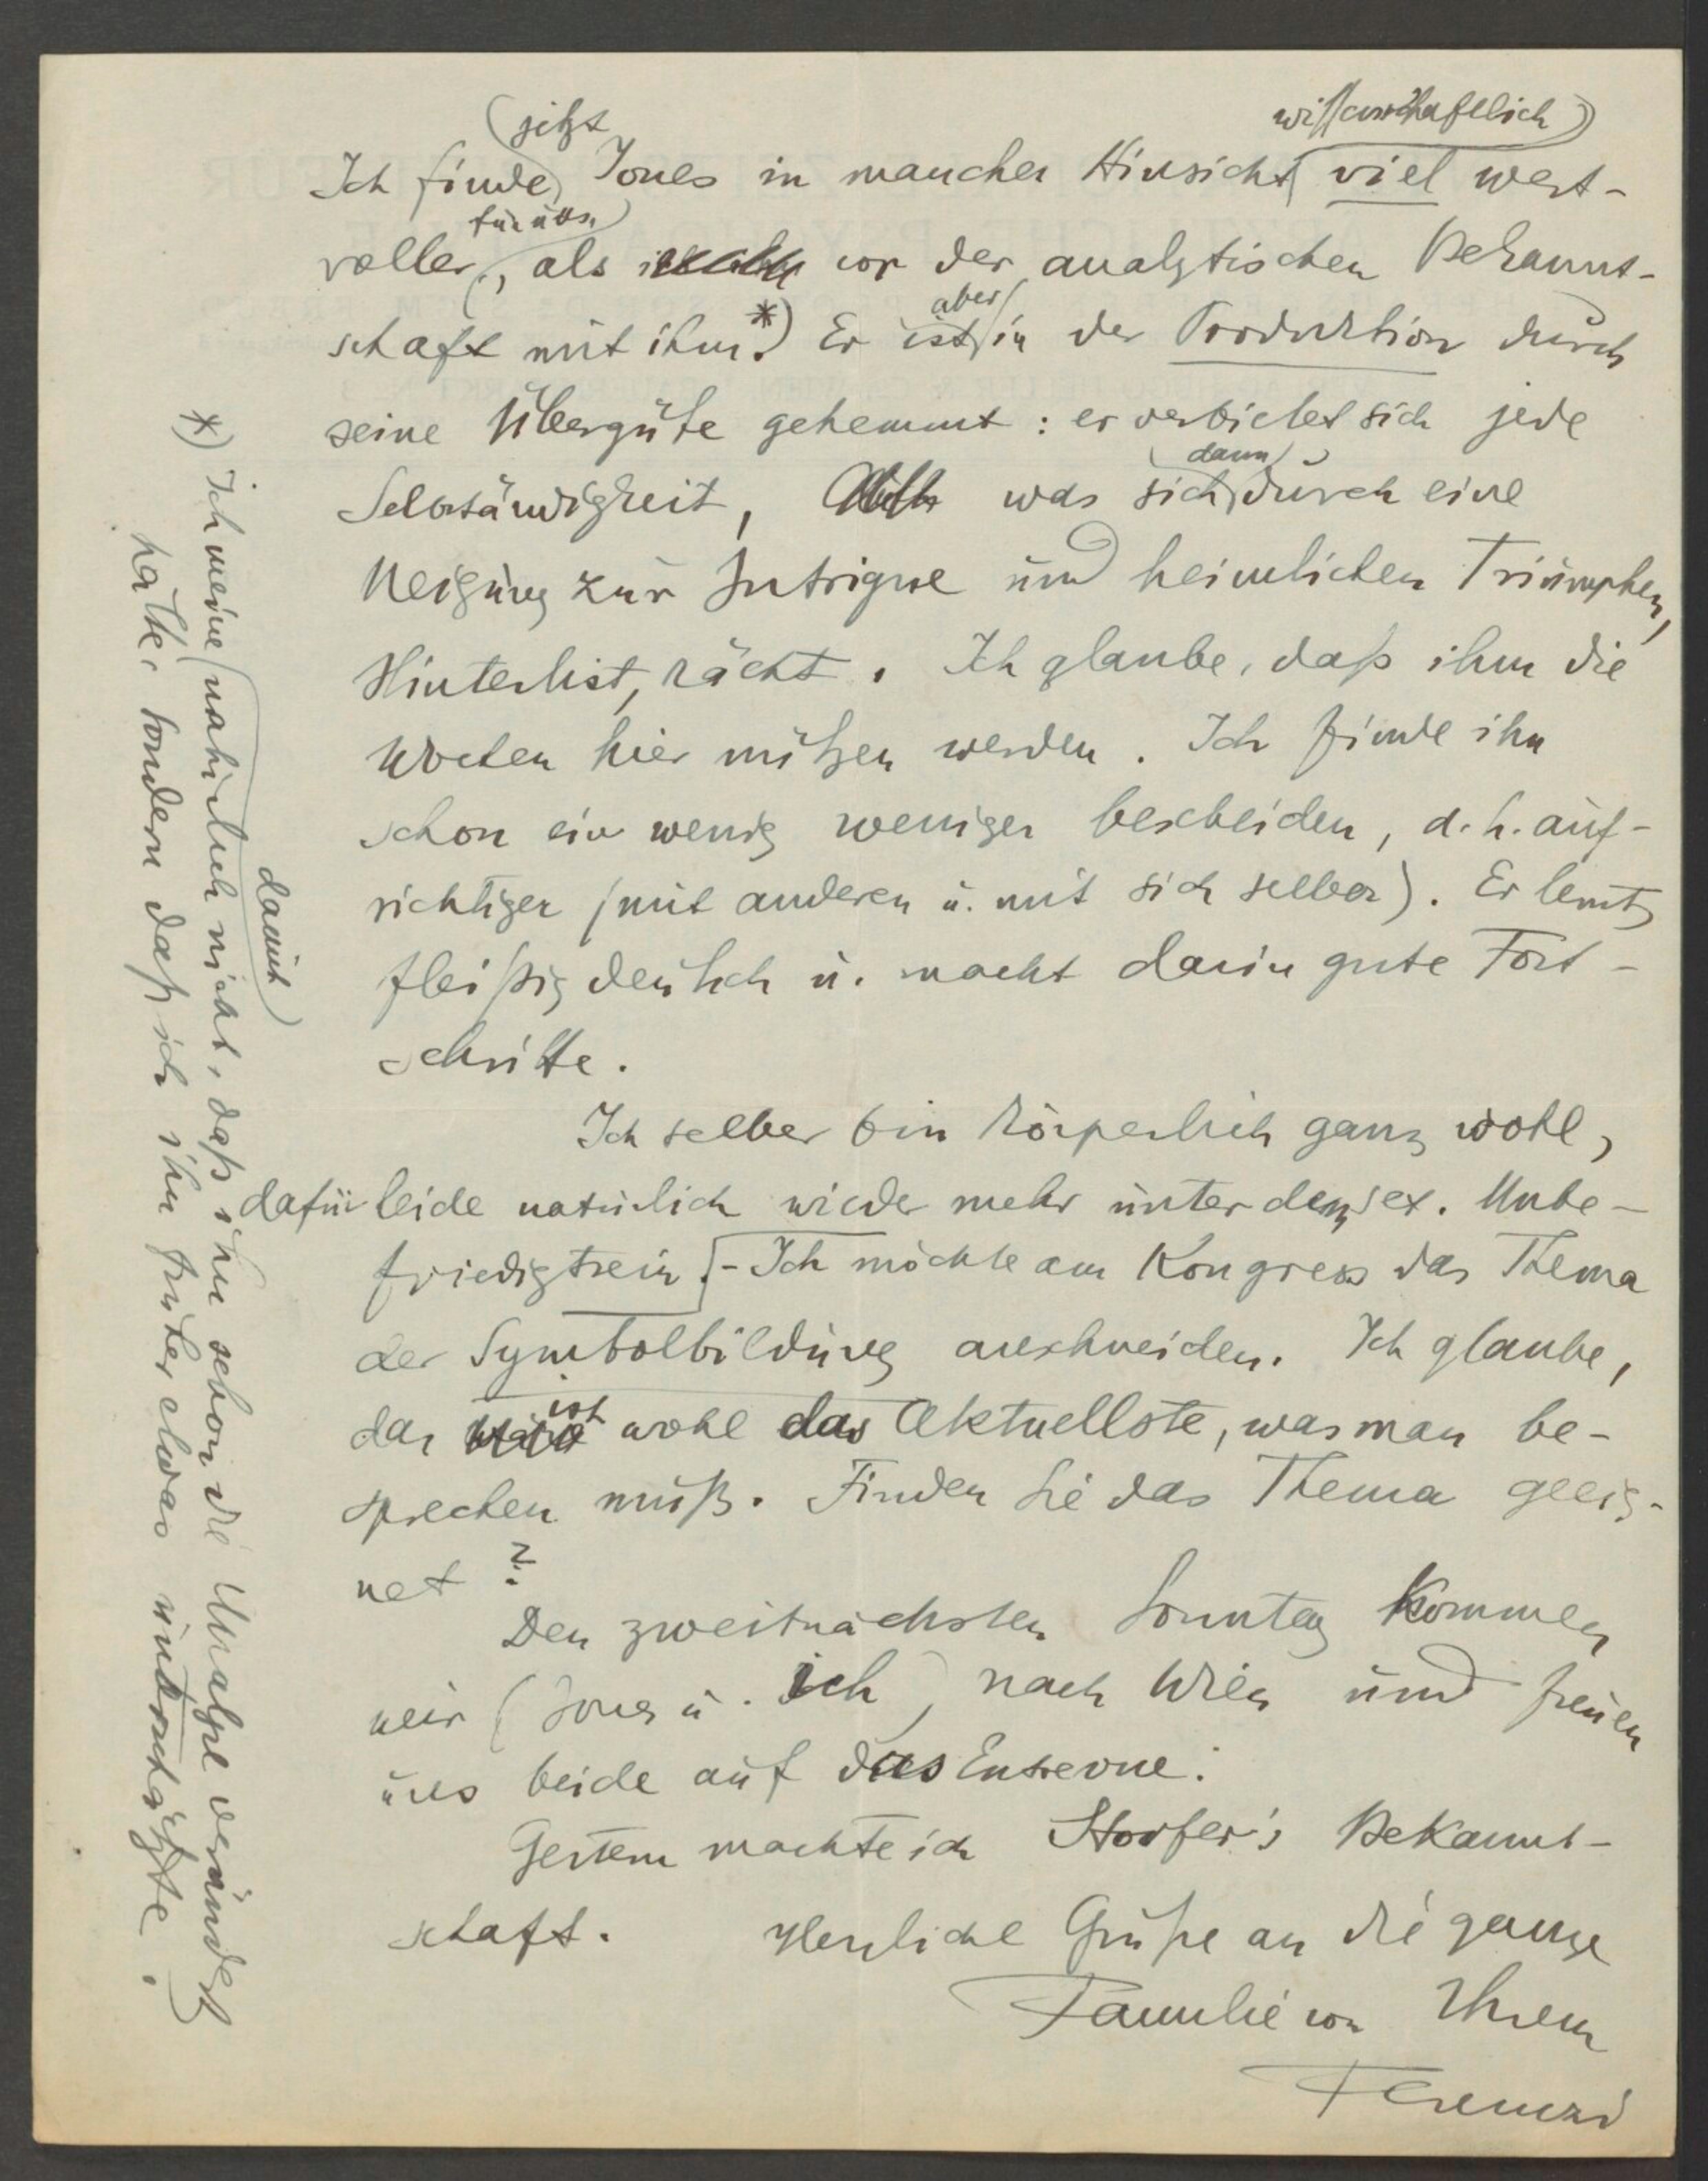 Ich finde jetzt Jones in mancher Hinsicht wissenschaftlich viel wert-
voller für uns, als vor der analytischen Bekannt-
schaft mit ihm.*) Er ist aber in der Produktion durch
seine Übergüte gehemmt: er verbietet sich jede
Selbständigkeit, was sich dann durch eine
Neigung zur Intrigue und heimlichen Triumphen,
Hinterlist, rächt. Ich glaube, daß ihm die
Wochen hier nützen werden. Ich finde ihn
schon ein wenig weniger bescheiden, d. h. auf-
richtiger (mit anderen u. mit sich selber). Er lernt
fleißig deutsch u. macht darin gute Fort-
schritte.
Ich selber bin körperlich ganz wohl,
dafür leide natürlich wieder mehr unter dem sex. Unbe-
friedigtsein. - Ich möchte am Kongress das Thema
der Symbolbildung anschneiden. Ich glaube,
das ist wohl das Aktuellste, was man be-
sprechen muß. Finden Sie das Thema geeig-
net?
Den zweitnächsten Sonntag kommen
wir (Jones u. ich) nach Wien und freuen
uns beide auf das Entrevue.
Gestern machte ich Storfer's Bekannt-
schaft. Herzliche Grüße an die ganze
Familie von Ihrem
Ferenczi
*) Ich meine damit natürlich nicht, daß ihn schon die Analyse verändert
hätte, sondern daß ich ihn früher etwas unterschätzte.